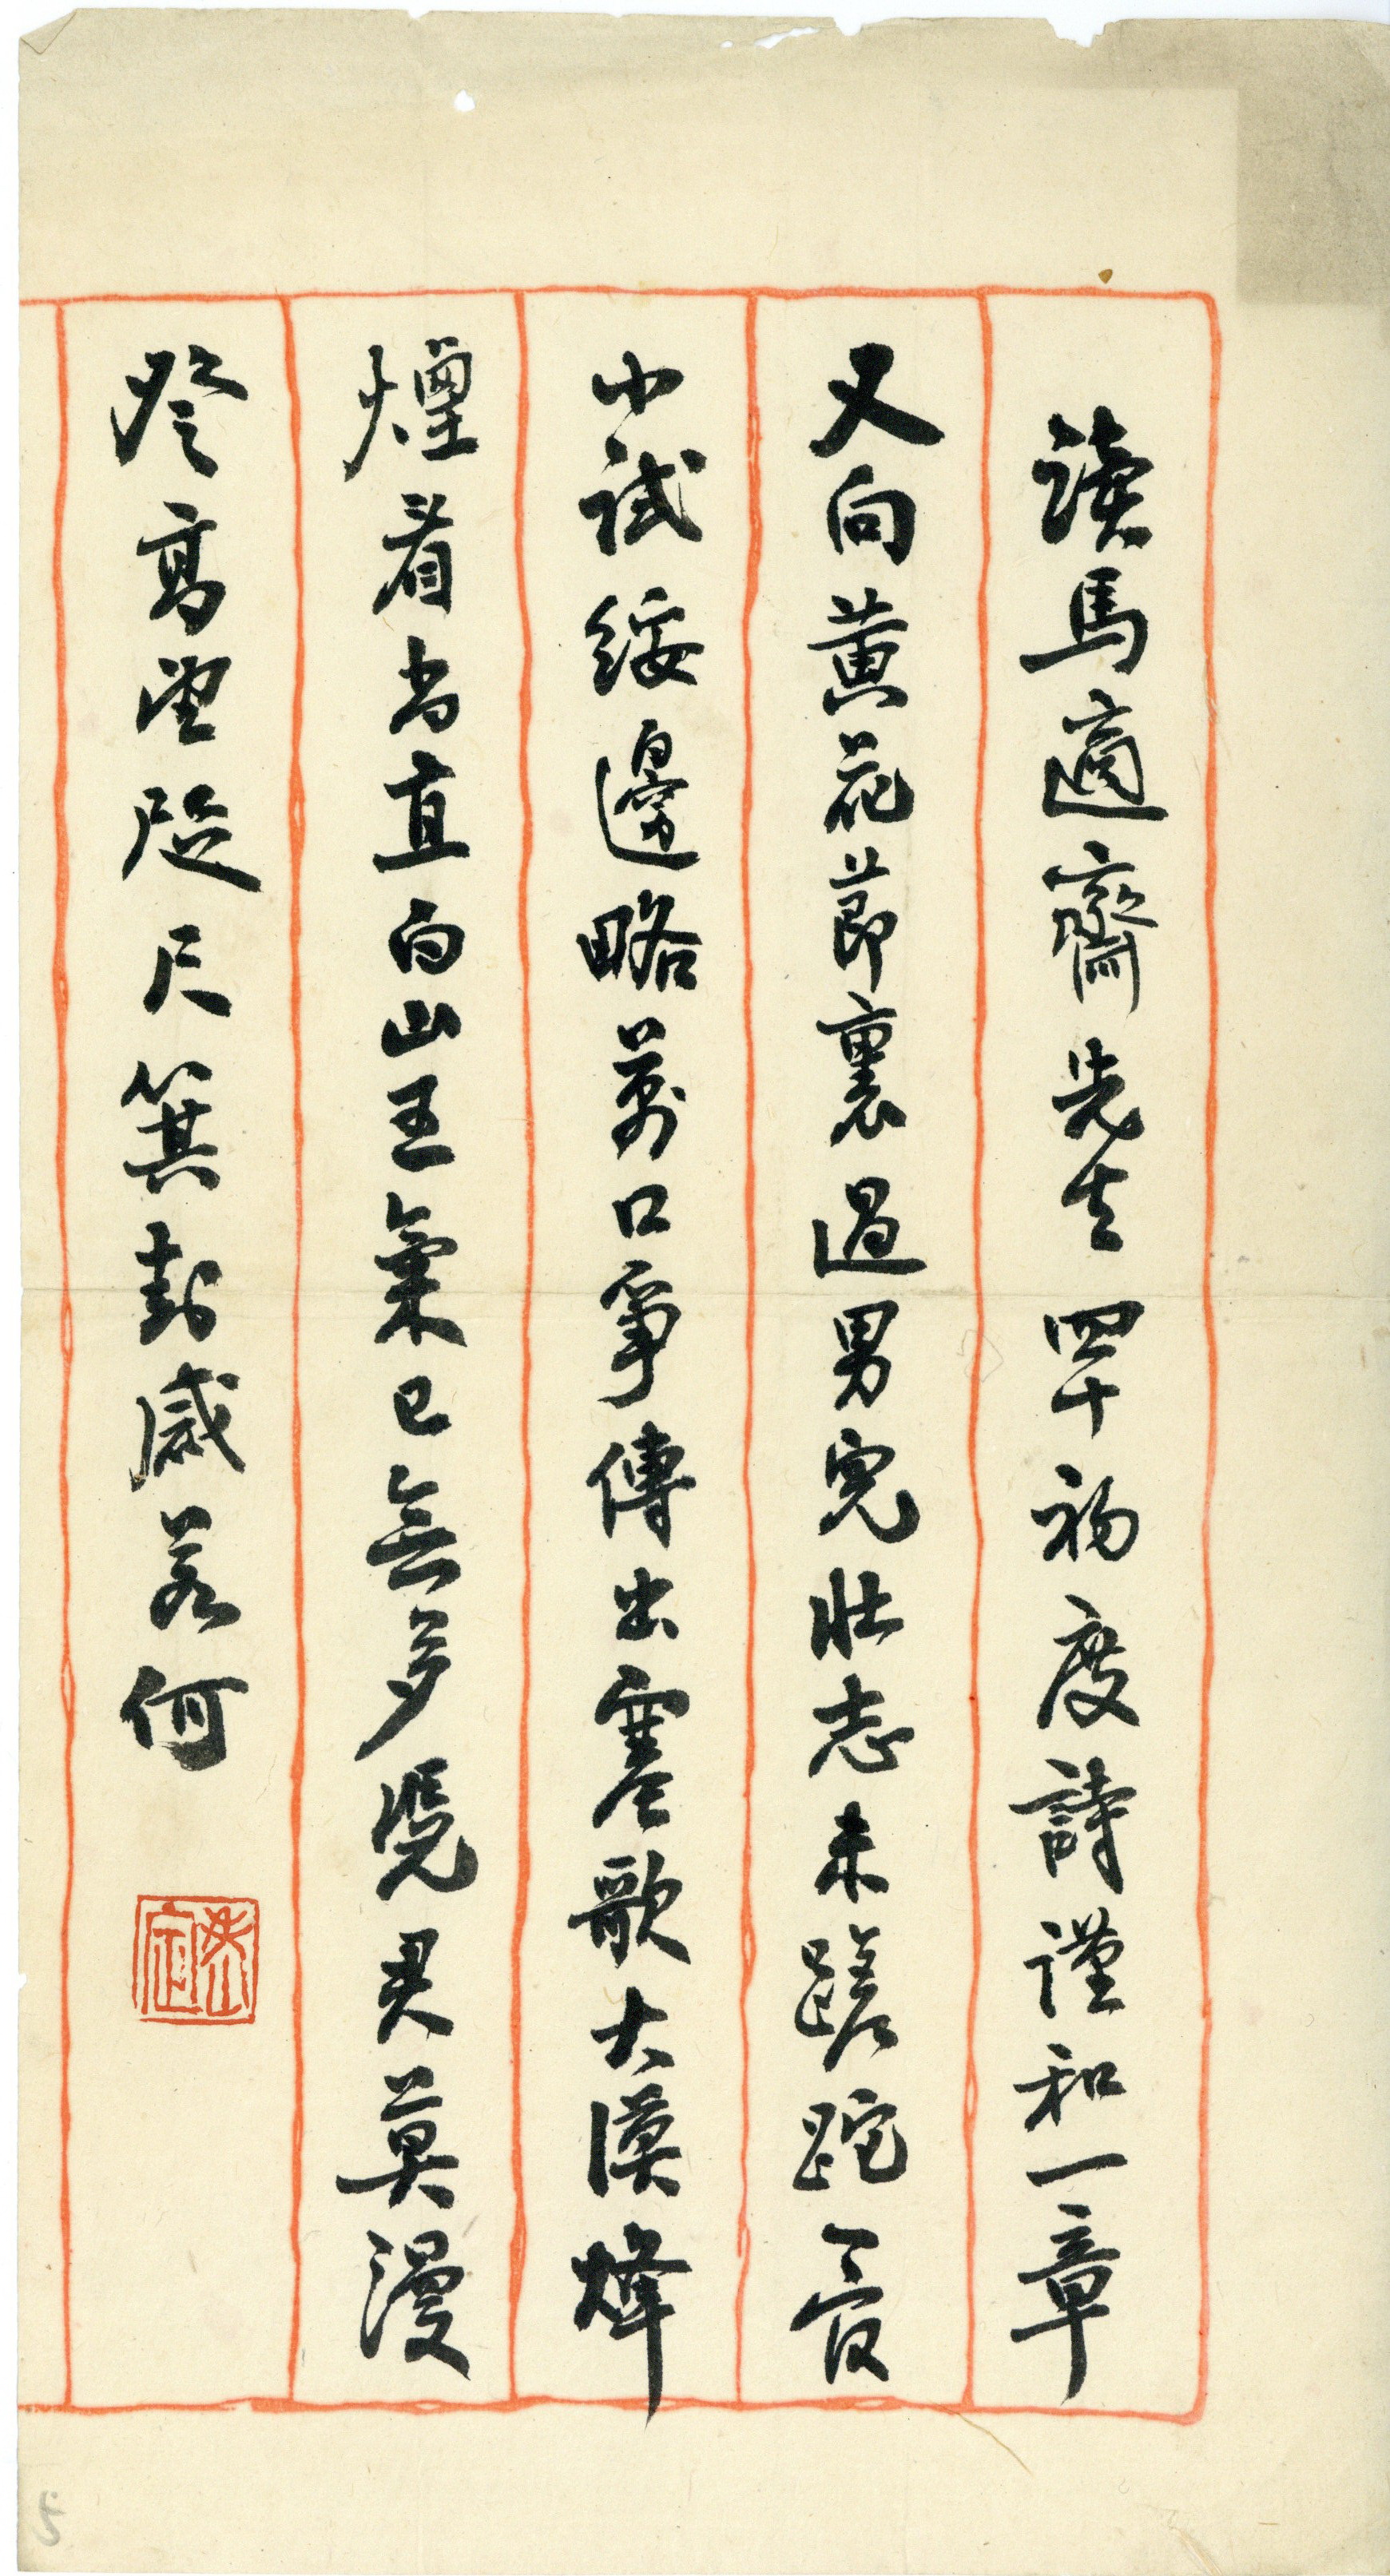 讀馬適齋先生四十初度詩謹和一章
又向黃花節裏過男兒壯志未蹉跎一官
小試綏邊略萬口爭傳出塞歌大漠烽
煙看尚直白山王氣已無多憑君莫漫
登高望咫尺箕封感若何